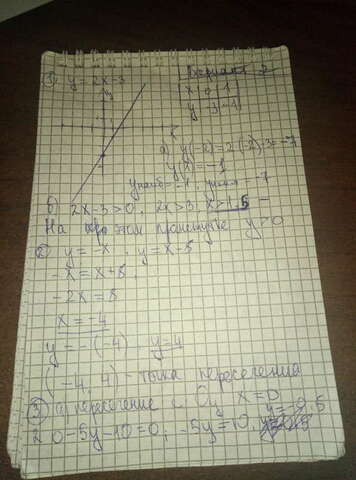 ① y = 2x-3
Вариант 2
x 0 1
y -3 -1
а) y(-2) = 2·(-2)-3 = -7
y(1) = -1
yнаиб = -1, yнаим = -7
б) 2x-3>0, 2x>3, x>1,5
На этом промежутке y>0
② y = -x, y = x+8
-x = x+8
-2x = 8
x = -4
y = -(-4) y=4
(-4, 4) - точка пересечения
③ а) пересечение с Oy x=0
2·0-5y-10=0; -5y=10,